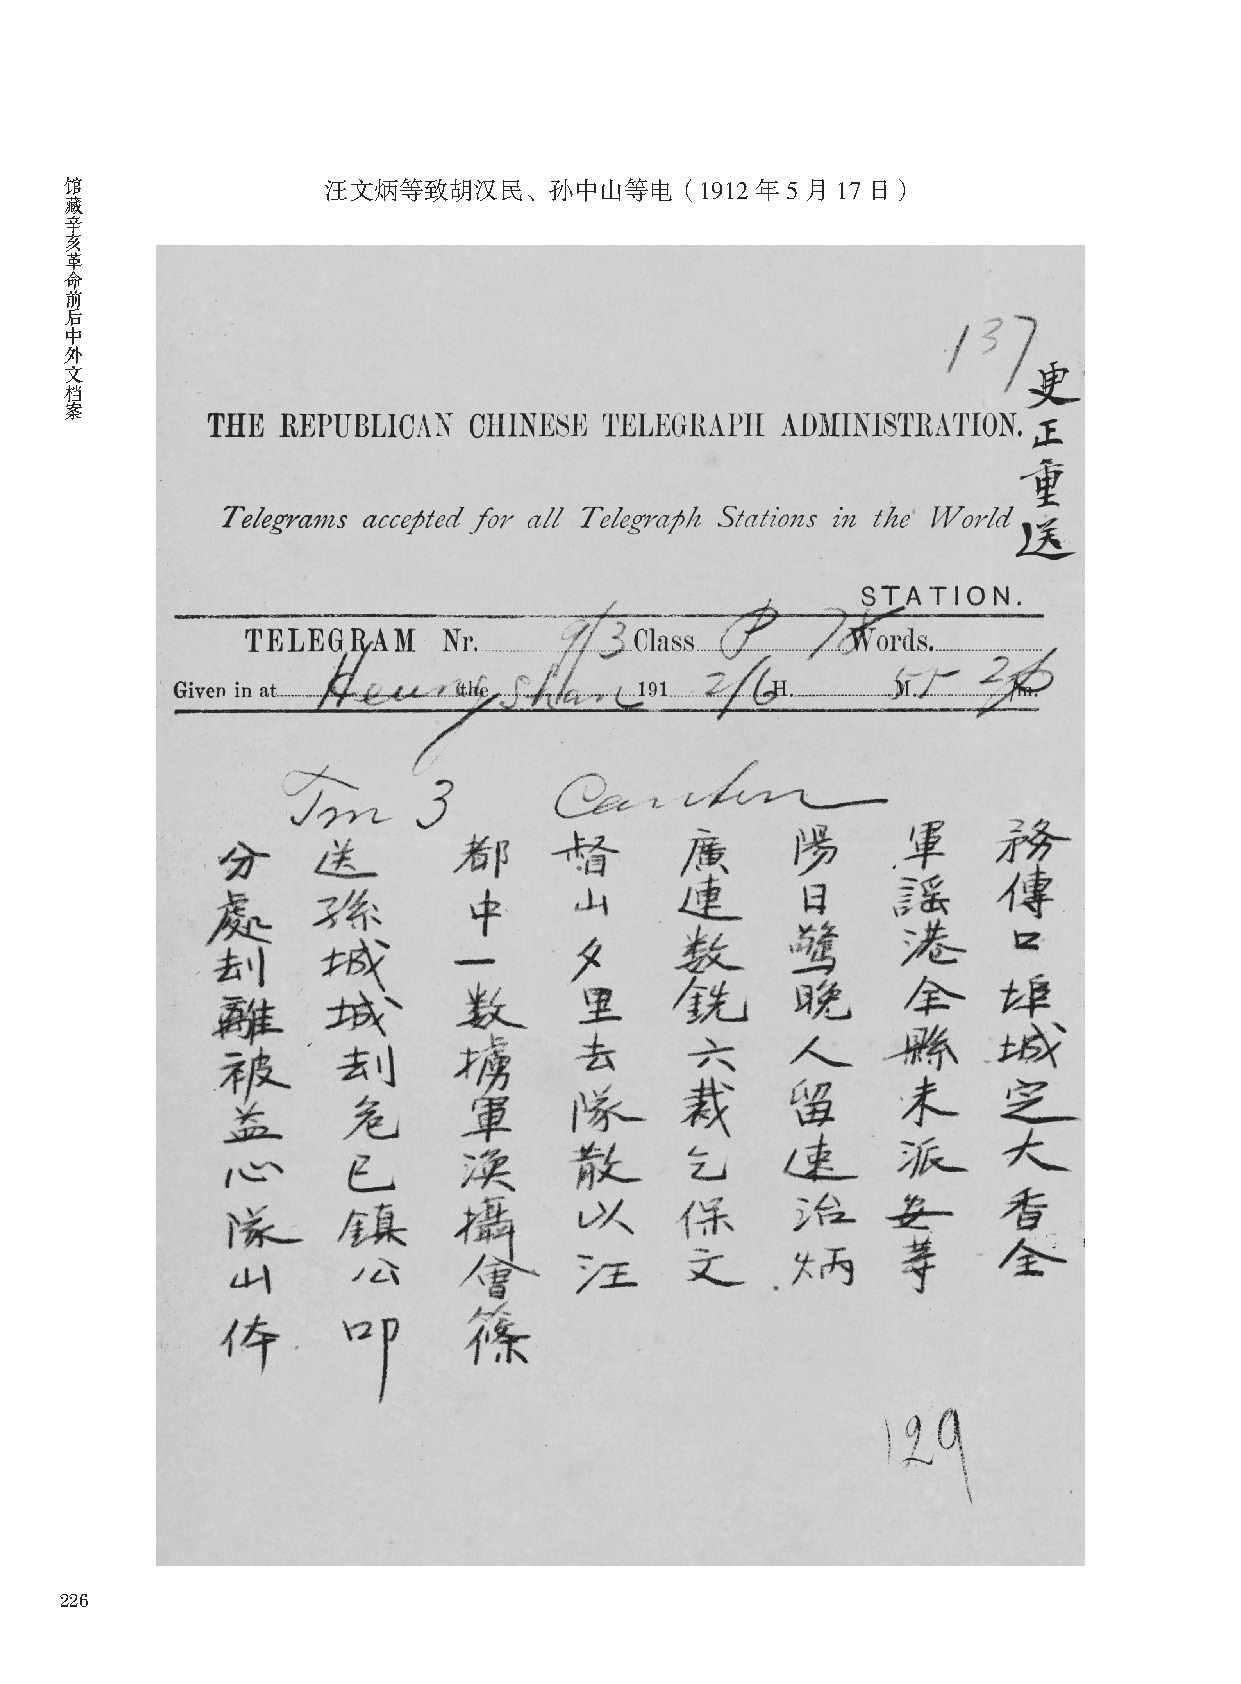 馆藏辛亥革命前后中外文档案
汪文炳等致胡汉民、孙中山等电（1912 年 5 月 17 日）
137
更正重送
THE REPUBLICAN CHINESE TELEGRAPH ADMINISTRATION.
Telegrams accepted for all Telegraph Stations in the World
STATION.
TELEGRAM Nr. 9/3 Class P 78 Words.
Given in at Heungshan the 191 2/6 H. M. 55 m.
Tm 3 Canton
分送都督廣陽軍務
處孫中山連日謠傳
刦城一夕数驚港口
離城数里銑晚全埠
被刦擄去六人縣城
益危軍隊裁留未定
心已渙散乞速派大
隊鎮攝以保治安香
山公會汪文炳等全
体叩篠
129
226